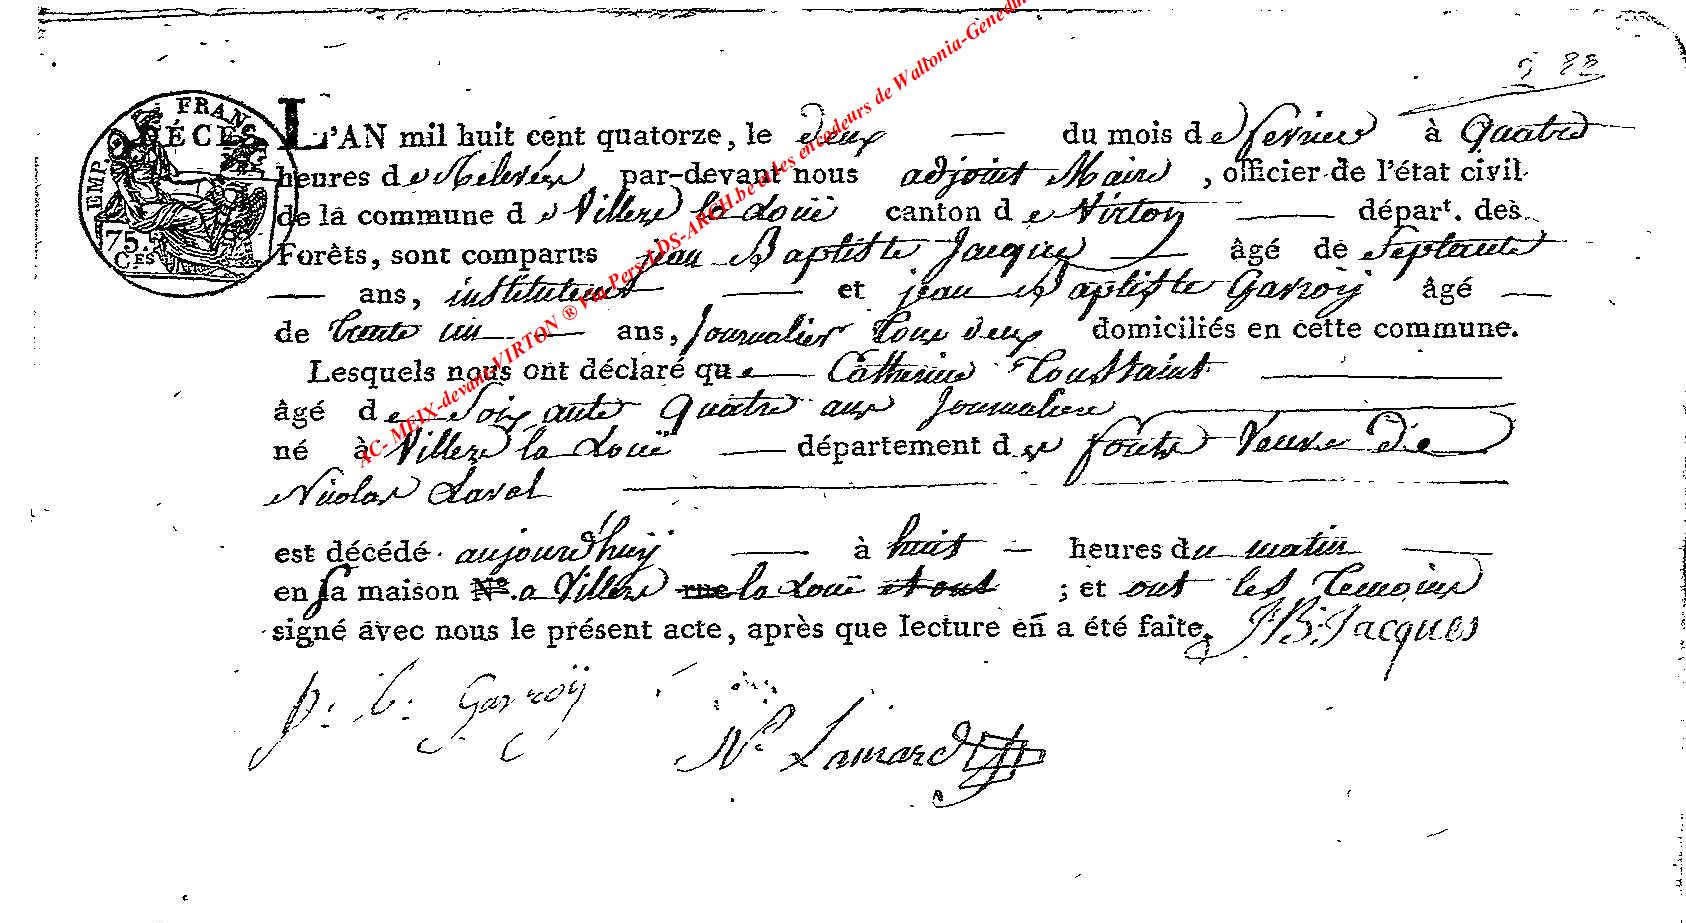 EMP. FRANÇ
DÉCES
75.
Cᴱˢ
L'AN mil huit cent quatorze, le deux du mois de fevrier à quatre
heures de Relevée par-devant nous adjoint Maire , officier de l'état civil
de la commune de Villers la Loüe canton de Virton départ. des
Forêts, sont comparus jean Baptiste Jacques âgé de septente
ans, instituteur et jean Baptiste Gavroÿ âgé
de trente un ans, journalier tous deux domiciliés en cette commune.
Lesquels nous ont déclaré que Catherine Toussaint
âgé de Soixante quatre ans journaliere
né à Villers la Loüe département de foréts veuve de
Nicolas Lavol
est décédé aujourd'huÿ à huit heures du matin
en sa maison Nº. a Villers rue la Loüe et ont ; et ont les temoins
signé avec nous le présent acte, après que lecture en a été faite. J. B. Jacques
j: b: Gavroÿ
AC- MEIX-devant-VIRTON ® Via Pers-LDS-ARCH.be et les encodeurs de Wallonia-Genedi